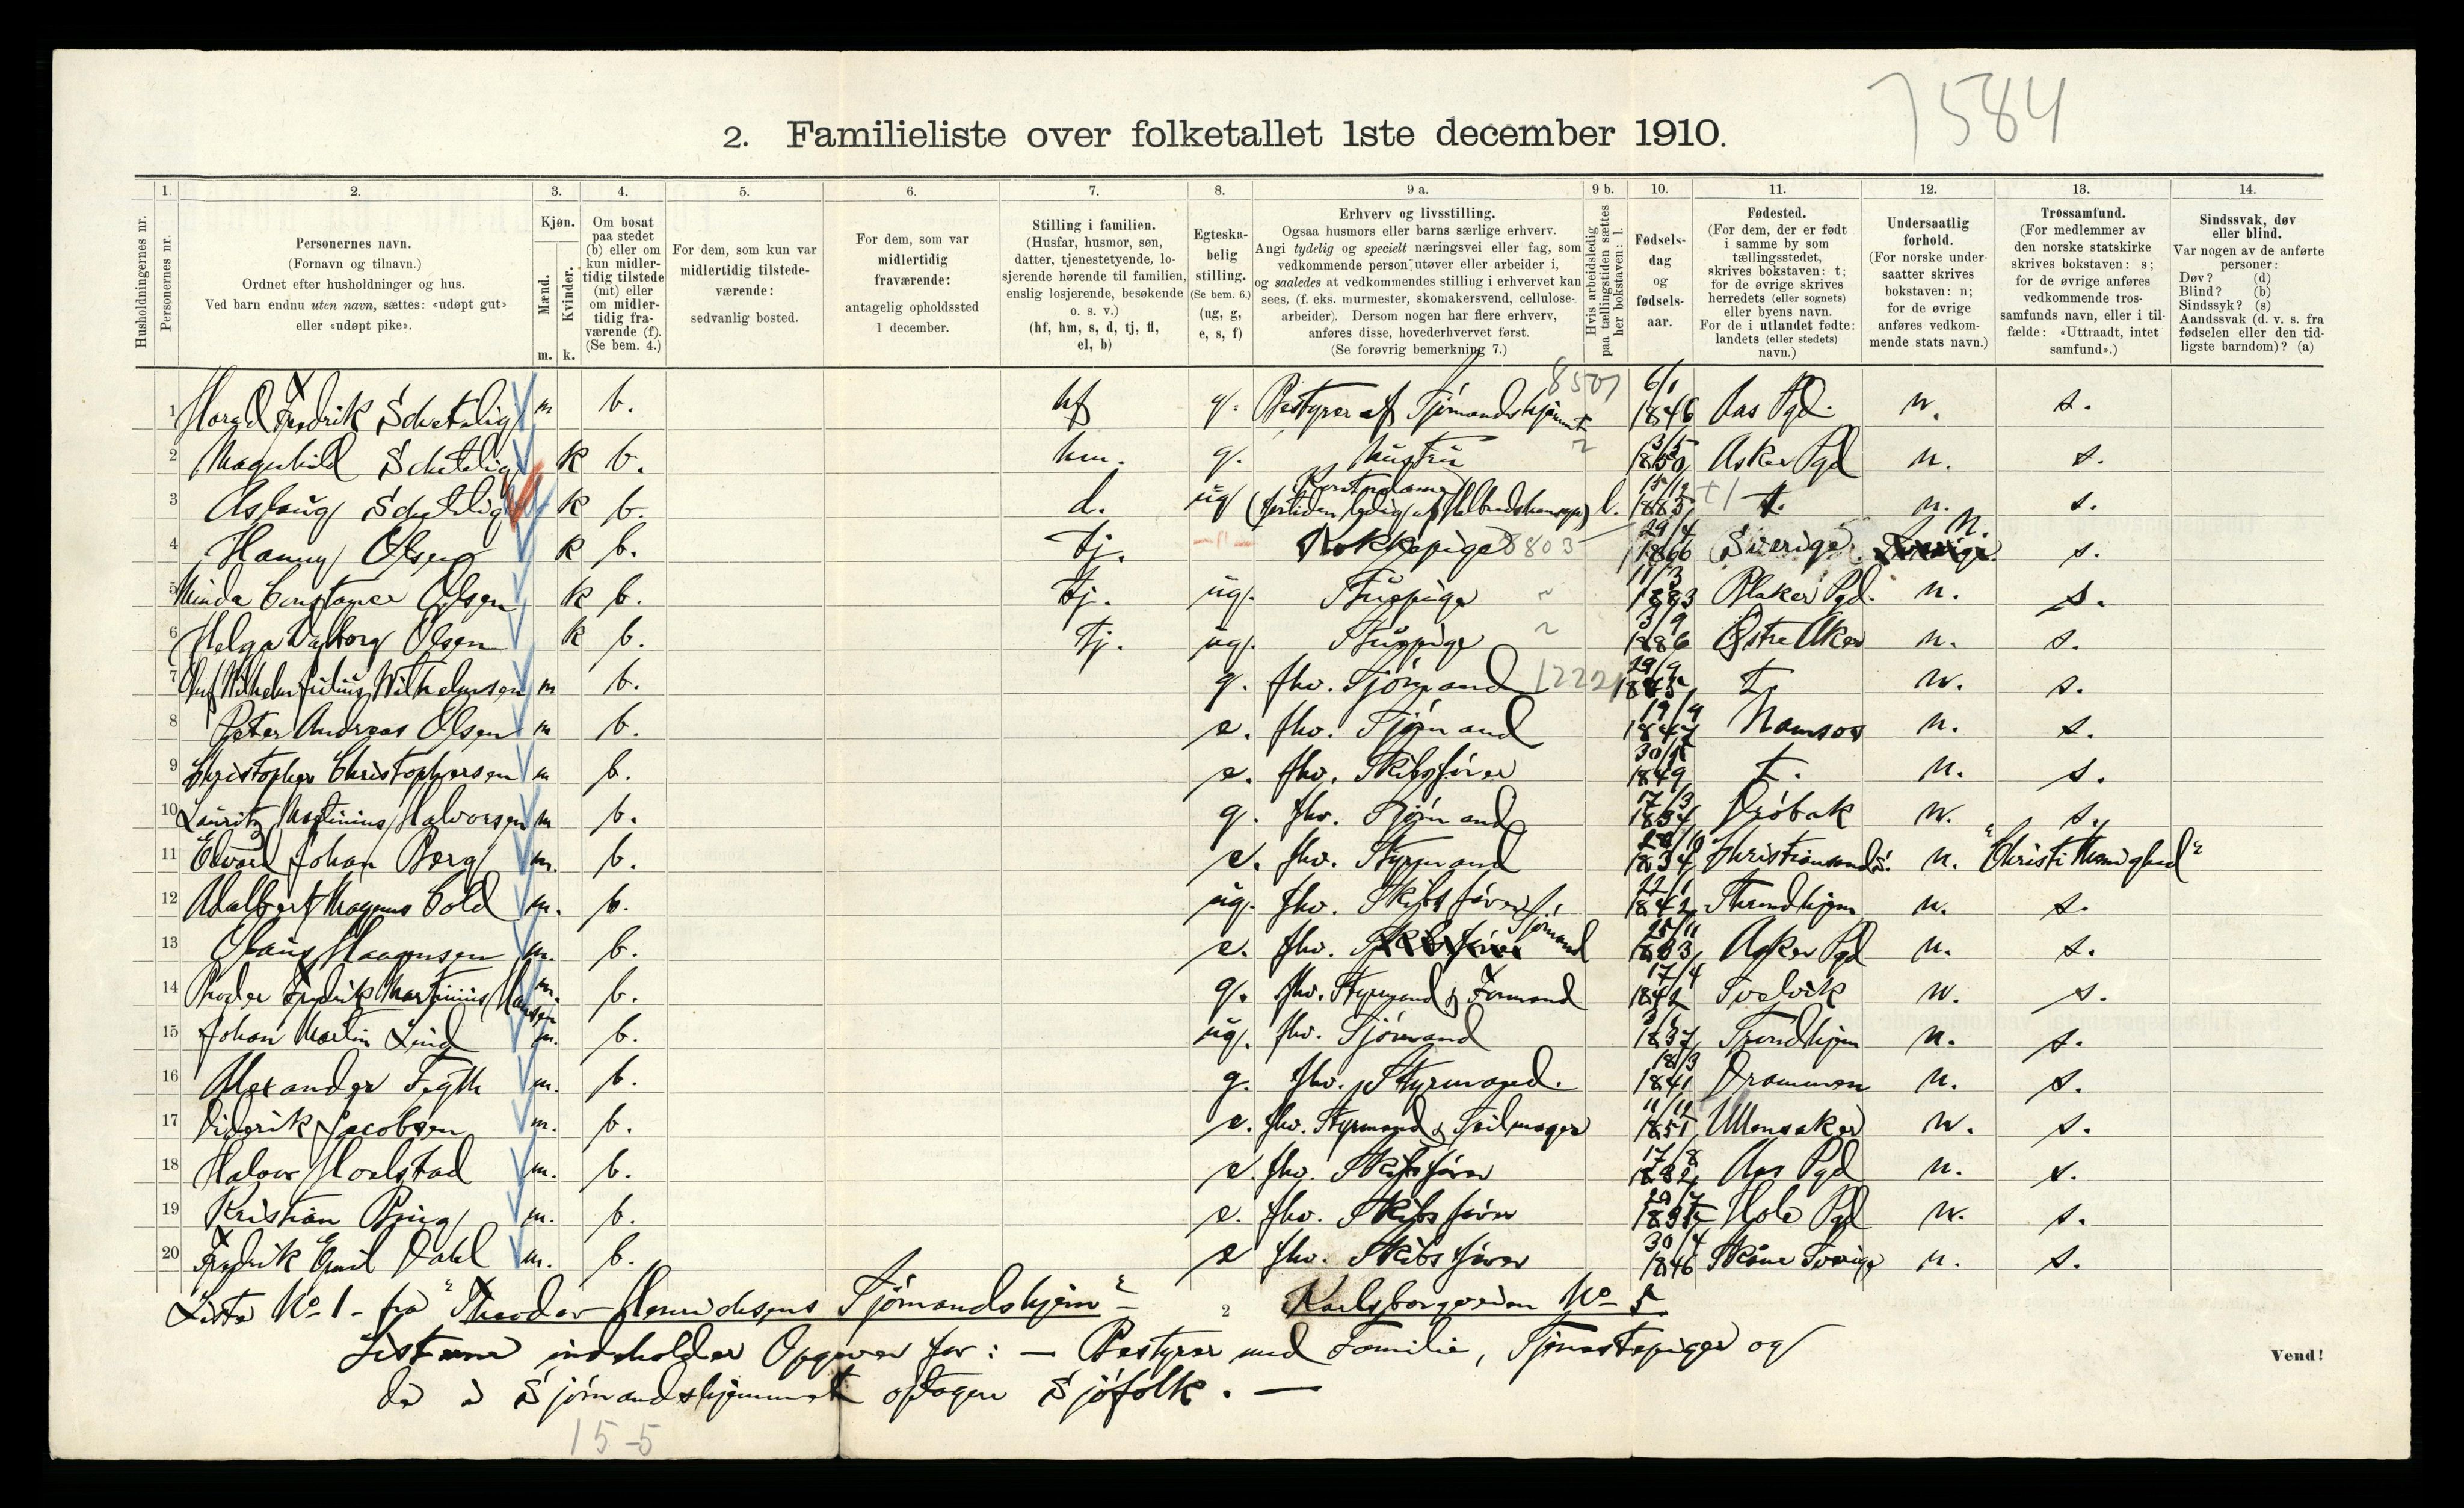 7584
2. Familieliste over folketallet 1ste december 1910.
1. 2. 3. 4. 5. 6. 7. 8. 9 a. 9 b. 10. 11. 12. 13. 14.
Husholdningernes nr.
Personernes nr.
Personernes navn.
(Fornavn og tilnavn.)
Ordnet efter husholdninger og hus.
Ved barn endnu uten navn, sættes: «udøpt gut»
eller «udøpt pike».
Kjøn.
Mænd.
Kvinder.
m. k.
Om bosat
paa stedet
(b) eller om
kun midler-
tidig tilstede
(mt) eller
om midler-
tidig fra-
værende (f).
(Se bem. 4.)
For dem, som kun var
midlertidig tilstede-
værende:
sedvanlig bosted.
For dem, som var
midlertidig
fraværende:
antagelig opholdssted
1 december.
Stilling i familien.
(Husfar, husmor, søn,
datter, tjenestetyende, lo-
sjerende hørende til familien,
enslig losjerende, besøkende
o. s. v.)
(hf, hm, s, d, tj, fl,
el, b)
Egteska-
belig
stilling.
(Se bem. 6.)
(ug, g,
e, s, f)
Erhverv og livsstilling.
Ogsaa husmors eller barns særlige erhverv.
Angi tydelig og specielt næringsvei eller fag, som
vedkommende person utøver eller arbeider i,
og saaledes at vedkommendes stilling i erhvervet kan
sees, (f. eks. murmester, skomakersvend, cellulose-
arbeider). Dersom nogen har flere erhverv,
anføres disse, hovederhvervet først.
(Se forøvrig bemerkning 7.)
Hvis arbeidsledig
paa tællingstiden sættes
her bokstaven: l.
Fødsels-
dag
og
fødsels-
aar.
Fødested.
(For dem, der er født
i samme by som
tællingsstedet,
skrives bokstaven: t;
for de øvrige skrives
herredets (eller sognets)
eller byens navn.
For de i utlandet fødte:
landets (eller stedets)
navn.)
Undersaatlig
forhold.
(For norske under-
saatter skrives
bokstaven: n;
for de øvrige
anføres vedkom-
mende stats navn.)
Trossamfund.
(For medlemmer av
den norske statskirke
skrives bokstaven: s;
for de øvrige anføres
vedkommende tros-
samfunds navn, eller i til-
fælde: «Uttraadt, intet
samfund».)
Sindssvak, døv
eller blind.
Var nogen av de anførte
personer:
Døv? (d)
Blind? (b)
Sindssyk? (s)
Aandssvak (d. v. s. fra
fødselen eller den tid-
ligste barndom)? (a)
1 Fredrik Schetelig m b. hf g. Bestyrer af Sjømandshjemmet 8501 6/1 1846 Aas Pgd. n. s.
2 Magnhild Schetelig k b. hm. g. Hustru 13/5 1850 Asker Pgd n. s.
3 Aslaug Schetelig k b. d. ug Kontordame l. 1885 t. n. s.
4 Hanny Olsen k b. tj. -"- Kokkepige 8803 29/4 1866 Sverige n. s.
5 Minda Constance Olsen k b. tj. ug. Stuepige 11/3 1883 Blaker Pgd. n. s.
6 Helga Valborg Olsen k b. tj. ug. Stuepige 3/9 1886 Østre Aker n. s.
7 Wilhelm Julius Wilhelmsen m b. g. fhv. Sjømand 12221 29/9 1845 t. n. s.
8 Peter Andreas Olsen m b. e. fhv. Sjømand 19/9 1847 Namsos n. s.
9 Christopher Christophersen m b. e. fhv. Skibsfører 1849 t. n. s.
10 Lauritz Martinius Halvorsen m b. g. fhv. Sjømand 17/3 1834 Drøbak n. s.
11 Edvard Johan Berg m. b. e. fhv. Styrmand 28/10 1834 Christiansand S. n. "Christi Menighed"
12 Adalbert Magnus Cold m. b. ug. fhv. Skibsfører 22/1 1842 Throndhjem n. s.
13 Haagensen m. b. e. fhv. Sjømand 25/11 1833 Asker Pgd n. s.
14 Fredrik Martinius Hansen m. b. g. fhv. Styrmand & Formand 17/4 1842 Svelvik n. s.
15 Johan Martin Lind m. b. ug. fhv. Sjømand 1837 Trondhjem n. s.
16 Alexander Fegth m. b. g. fhv. Styrmand. 18/3 1841 Drammen n. s.
17 Diderik Jacobsen m. b. e. fhv. Styrmand & Seilmager 11/12 1851 Ullensaker n. s.
18 Halvor Hoelstad m. b. e. fhv. Skibsfører 17/8 1832 Aas Pgd n. s.
19 Kristian Bring m. b. e. fhv. Skibsfører Hole Pgd n. s.
20 Fredrik Emil Dahl m. b. e fhv. Skibsfører 30/4 1846 Skåne Sverige n. s.
Liste No 1 - fra "Theodor Henrichsens Sjømandshjem" 2 Karlsborgveien No 5
Listerne indeholder Opgaver for: - Bestyrer med Familie, Tjenestepiger og
de i Sjømandshjemmet optagne Sjøfolk. -
Vend!
15-5